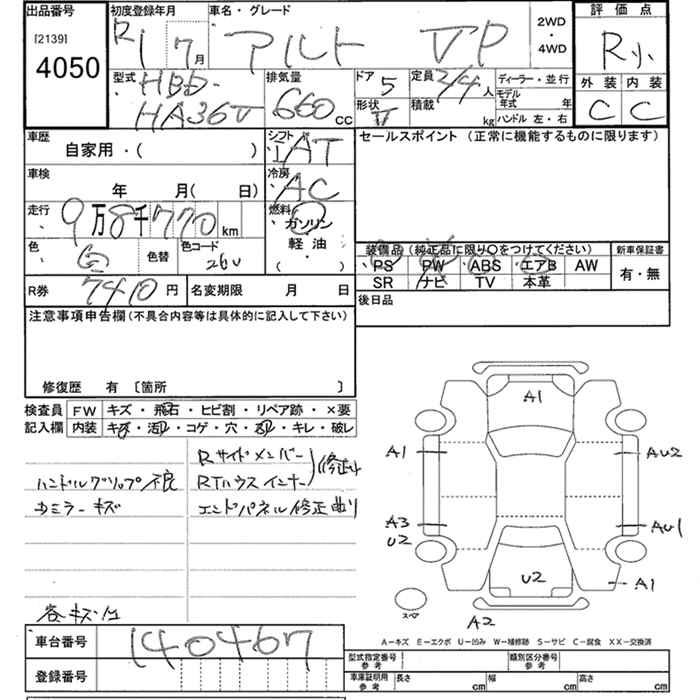 出品番号
[2139]
4050
初度登録年月
R1 7月
車名・グレード
アルト VP
2WD
・
4WD
評価点
R小
外装 内装
C C
型式
HBD-
HA36V
排気量
660 cc
ドア 5
形状 V
定員 2/4人
積載 kg
ディーラー・並行
モデル年式 年
ハンドル 左・右
車歴
自家用・( )
シフト
IAT
セールスポイント (正常に機能するものに限ります)
車検
年 月(日)
冷房
AC
走行
9万8千770km
燃料
・ガソリン
軽油・
( )
色
色替
色コード
26U
装備品 (純正品に限り○をつけてください)
・PS PW ・ABS ・エアB AW
SR ナビ TV 本革
新車保証書
有・無
R券 7410円
名変期限 月 日
後日品
注意事項申告欄(不具合内容等は具体的に記入して下さい)
修復歴 有 〔箇所 〕
検査員記入欄
FW キズ・飛石・ヒビ割・リペア跡・×要
内装 キズ・汚れ・コゲ・穴・スレ・キレ・破レ
Rサイドメンバー
RTハウスインナー
修正
エンドパネル修正曲り
ハンドルグリップ不良
カミラーキズ
各キズ凹
A1
A1
AU2
A3
U2
AU1
U2
A1
スペア
A2
A-キズ E-エクボ U-凹み W-補修跡 S-サビ C-腐食 XX-交換済
車台番号 140467
登録番号
型式指定番号
参考
類別区分番号
参考
車庫証明用
参考
長さ cm
幅 cm
高さ cm